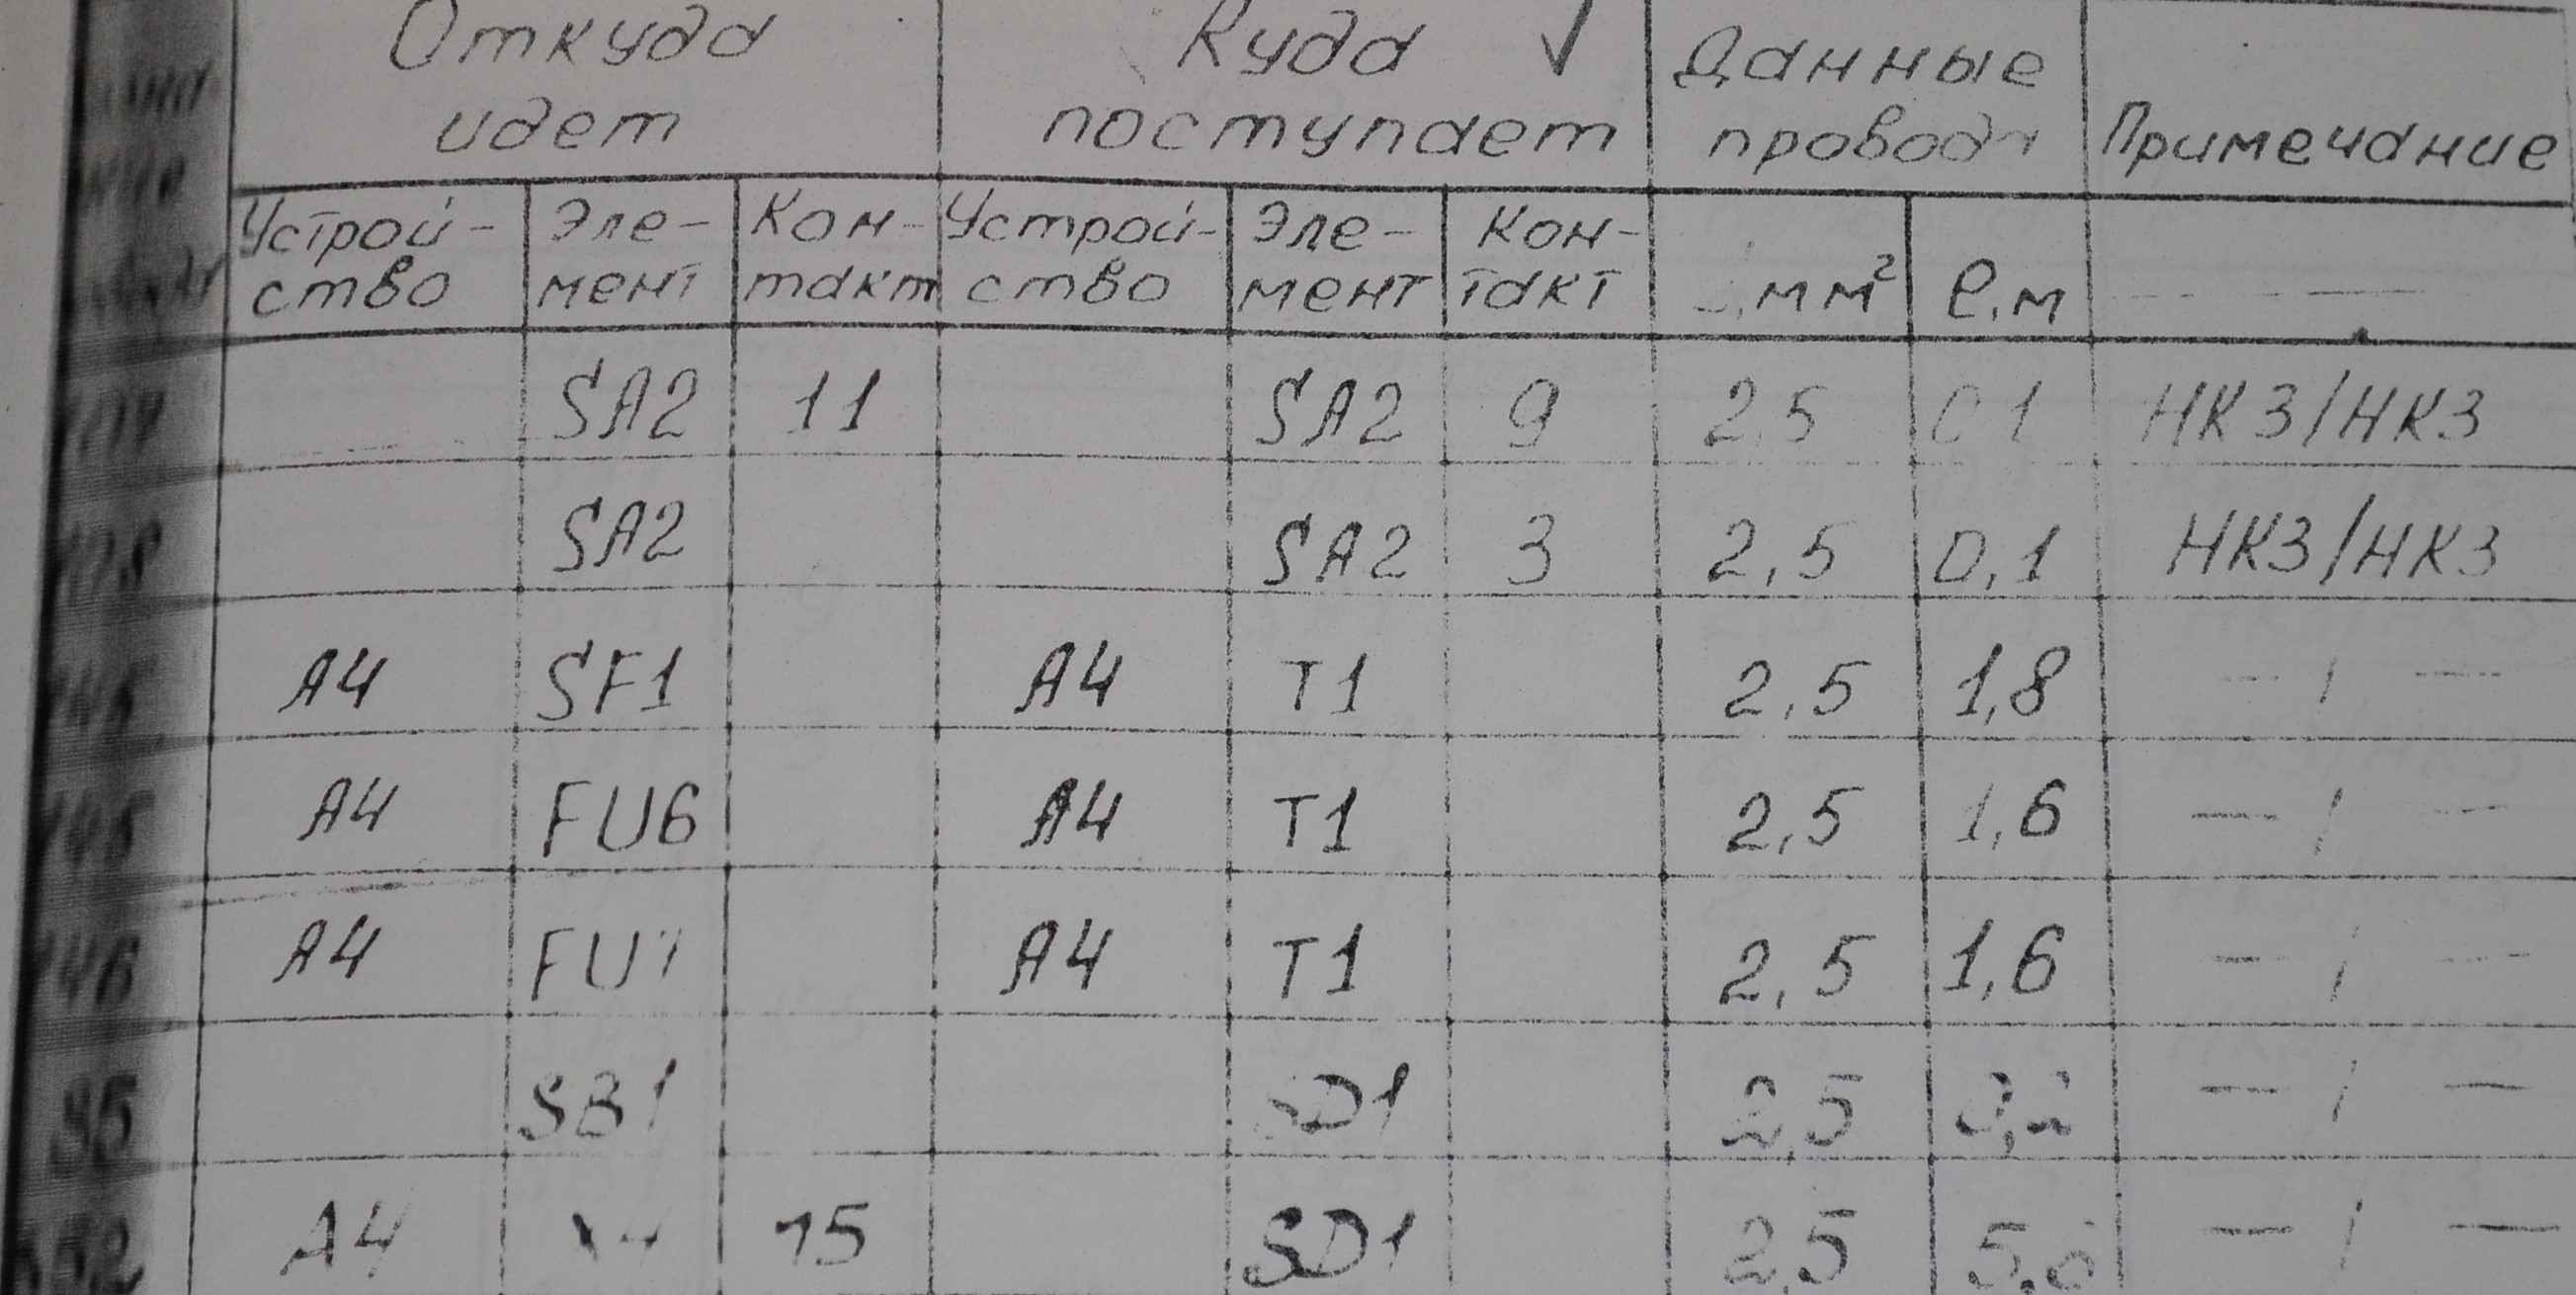 Откуда идет Куда ✓ поступает Данные провода Примечание
Устрой- Эле- Кон- Устрой- Эле- Кон-
ство мент такт ство мент такт мм² ℓ,м
SA2 11 SA2 9 2,5 0,1 НКЗ/НКЗ
SA2 SA2 3 2,5 0,1 НКЗ/НКЗ
А4 SF1 А4 Т1 2,5 1,8 — / —
А4 FU6 А4 Т1 2,5 1,6 — / —
46 А4 А4 Т1 2,5 1,6 — / —
95 SB1 SD1 2,5 — / —
А4 15 SD1 2,5 — / —